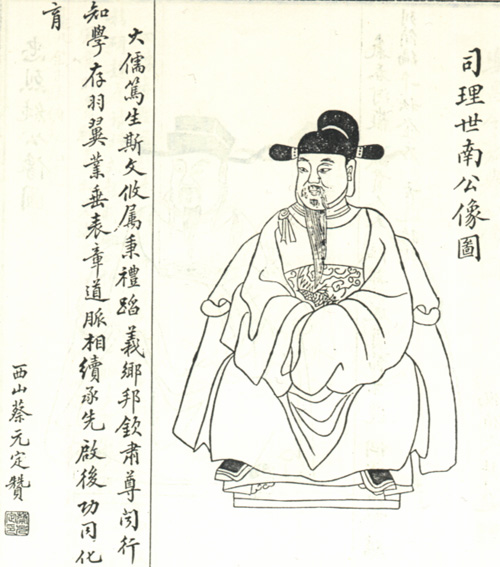 司理世南公像圖
大儒篤生斯文攸屬秉禮蹈義鄉邦欽肅尊闻行
知學存羽翼業垂表章道脈相續承先啟後功同化
育
西山蔡元定贊